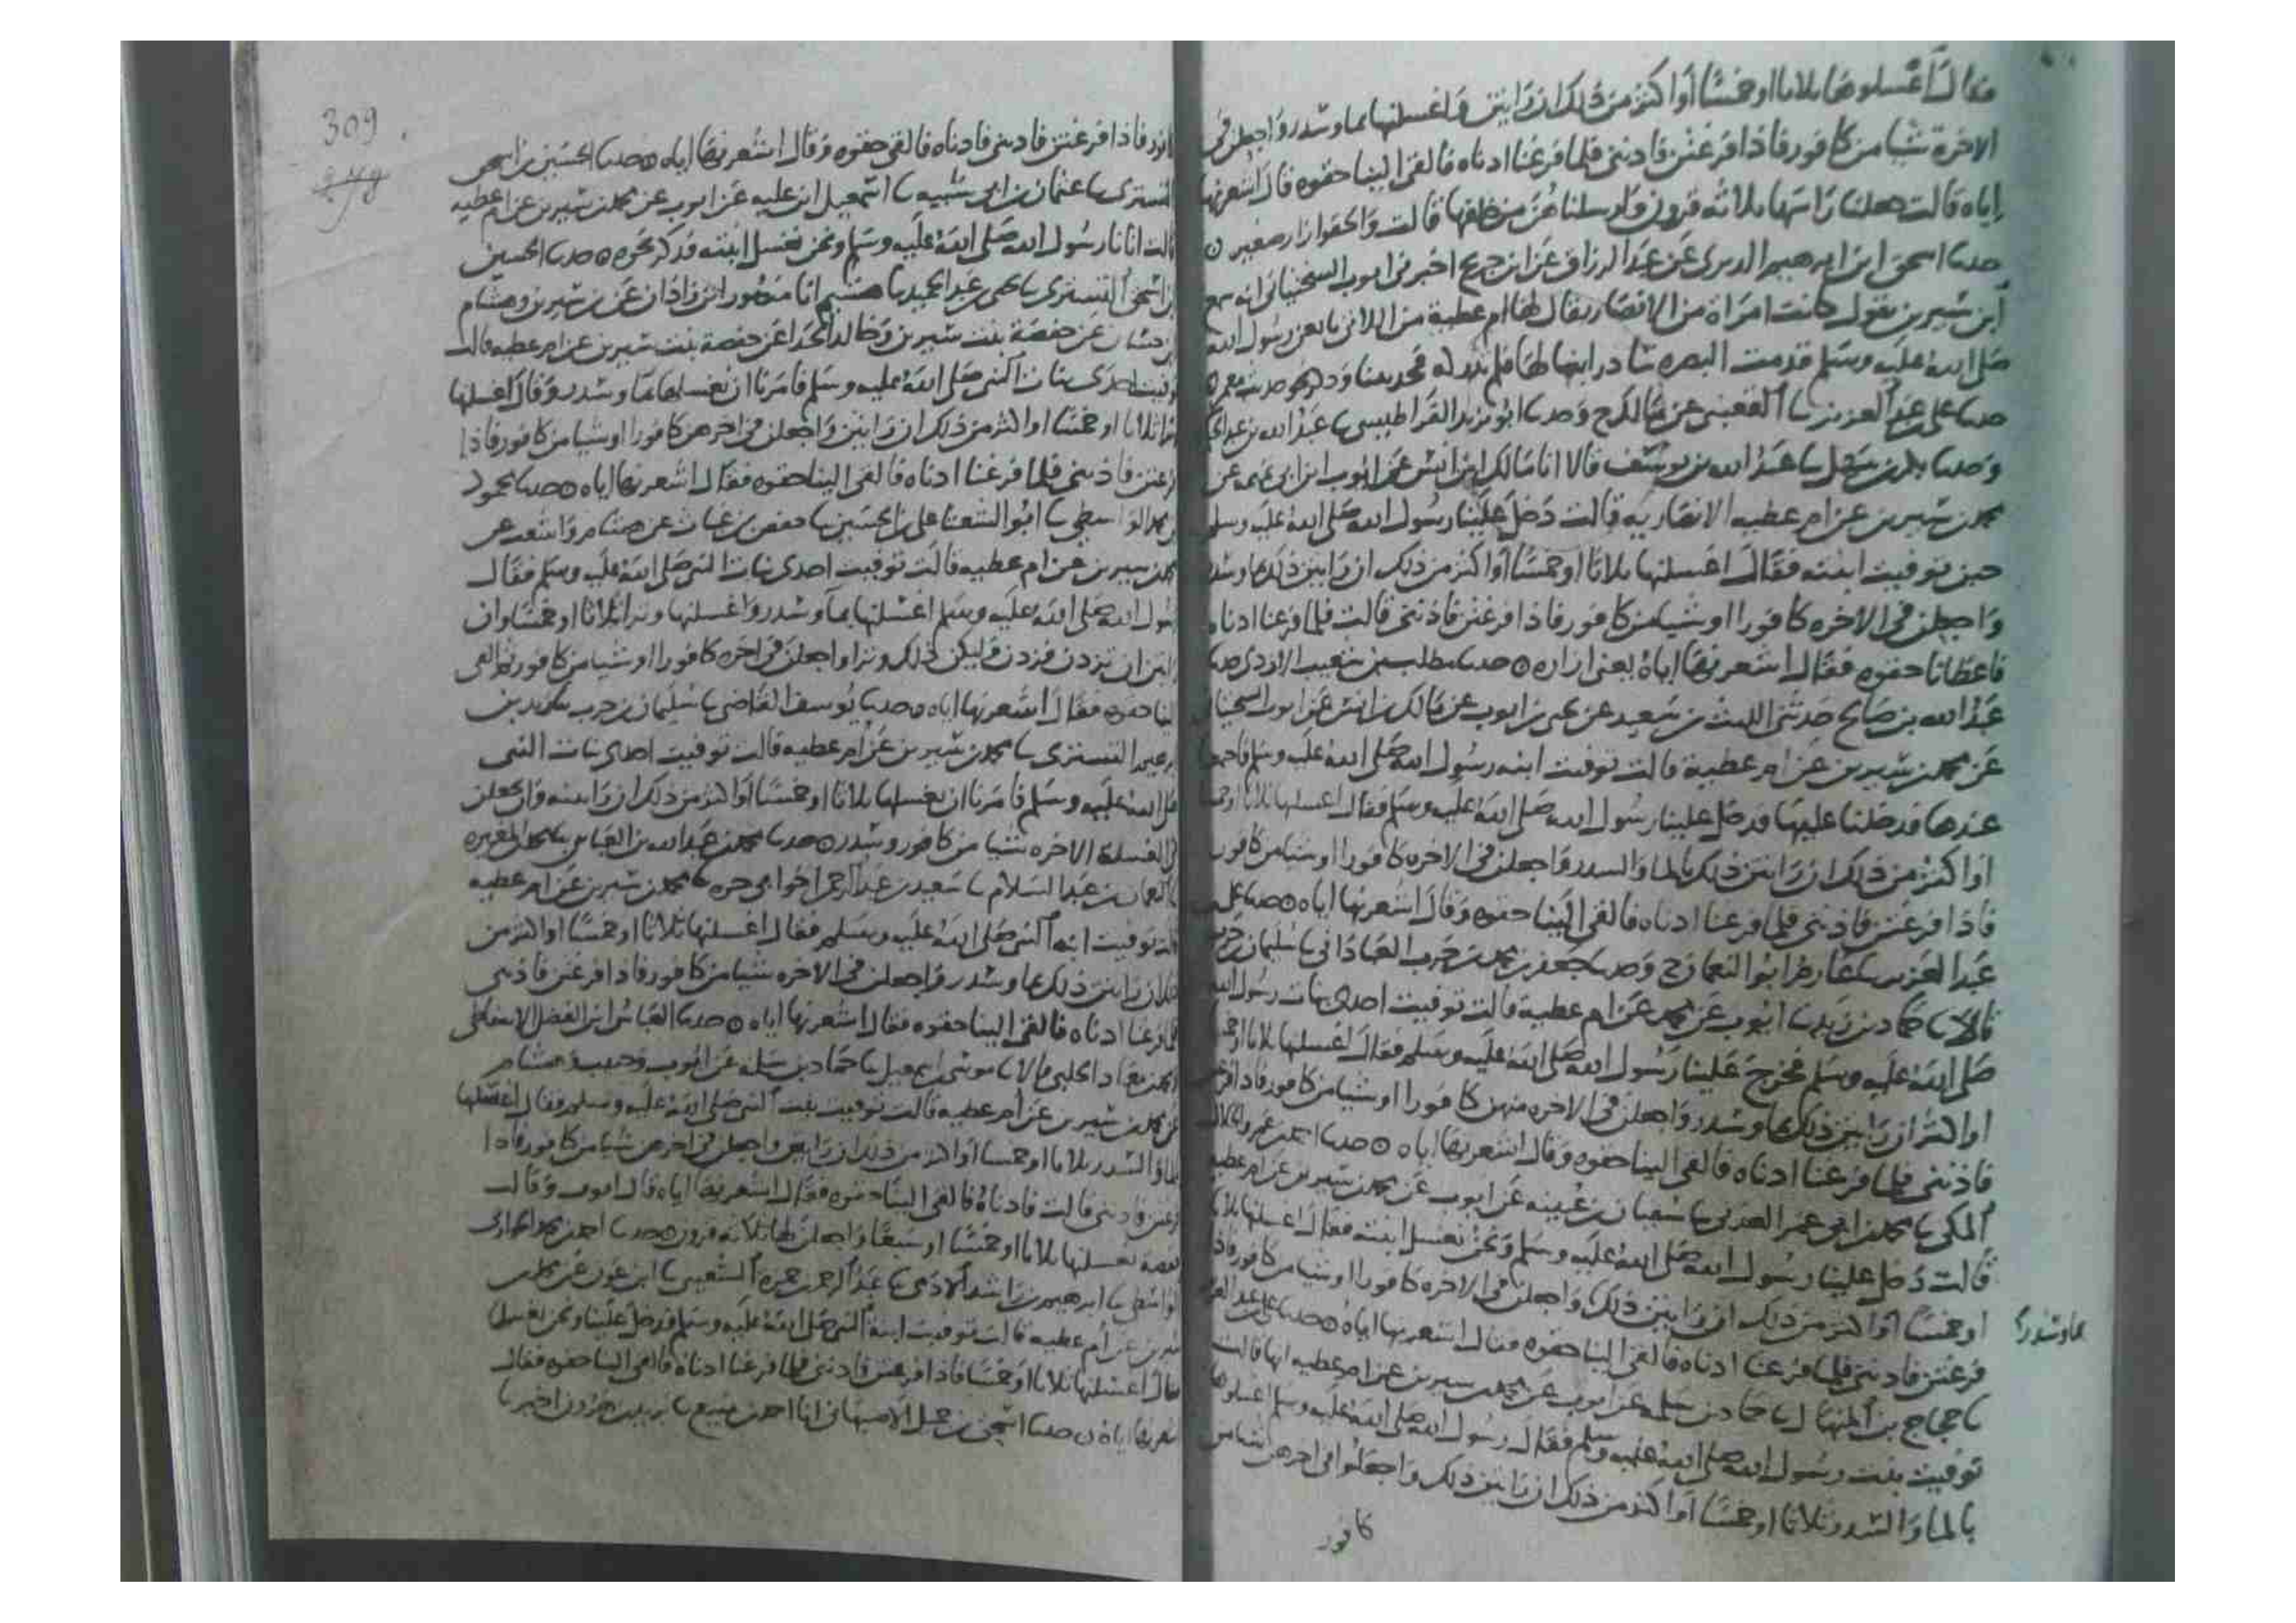 فقال اغسلوها ثلاثا او خمسا أو اكثر من ذلك ان رايتن واغسلنها بما وسدر واجعلن في
الاخرة شيا من كافور فاذا فرغتن فاذنني فلما فرغنا اذناه فالقى الينا حقوه قال اشعرنها
اياه قالت جعلنا راسها ثلاثه قرون وارسلناهن من خلفها قالت والحقو ازار صغير
حدثنا اسحق ابن ابرهيم الدبري عن عبد الرزاق عن ابن جريج اخبرني ايوب السختياني انه سمع
ابن سيرين يقول كانت امراة من الانصار يقال لها ام عطية من اللاتي بايعن رسول الله
صلى الله عليه وسلم قدمت البصره تبادر ابنا لها فلم تدركه فحدثتنا
حدثنا علي بن عبد العزيز ثنا القعنبي عن مالك ح وحدثنا ابو يزيد القراطيسي ثنا عبد الله بن عبد الحكم
وحدثنا بكر بن سهل ثنا عبد الله بن يوسف قالا انا مالك ابن انس عن ايوب ابن ابي تميمه عن
محمد بن سيرين عن ام عطيه الانصاريه قالت دخل علينا رسول الله صلى الله عليه وسلم
حين توفيت ابنته فقال اغسلنها ثلاثا او خمسا أو اكثر من ذلك ان رايتن ذلك بما وسدر
واجعلن في الاخره كافورا او شيا من كافور فاذا فرغتن فاذنني قالت فلما فرغنا اذناه
فاعطانا حقوه فقال اشعرنها اياه يعني ازاره حدثنا مطلب بن شعيب الازدي حدثنا
عبد الله بن صالح حدثني الليث بن سعيد عن يحيى بن ايوب عن مالك بن انس عن ايوب السختياني
عن محمد بن سيرين عن ام عطية قالت توفيت ابنه رسول الله صلى الله عليه وسلم
عندها فدخلنا عليها فدخل علينا رسول الله صلى الله عليه وسلم فقال اغسلنها ثلاثا او خمسا
او اكثر من ذلك ان رايتن ذلك بالما والسدر واجعلن في الاخره كافورا او شيا من كافور
فاذا فرغتن فاذنني فلما فرغنا اذناه فالقى الينا حقوه وقال اشعرنها اياه حدثنا علي بن
عبد العزيز ثنا عارم ابو النعمان ح وحدثنا جعفر بن محمد بن حرب العباداني ثنا سليمان بن حرب
قالا ثنا حماد بن زيد ثنا ايوب عن محمد عن ام عطية قالت توفيت احدى بنات رسول الله
صلى الله عليه وسلم فخرج علينا رسول الله صلى الله عليه وسلم فقال اغسلنها ثلاثا او خمسا
او اكثر ان رايتن ذلك بما وسدر واجعلن في الاخره منهن كافورا او شيا من كافور فاذا فرغتن
فاذنني فلما فرغنا اذناه فالقى الينا حقوه وقال اشعرنها اياه حدثنا احمد بن عمرو الخلال
المكي ثنا محمد بن ابي عمر العدني ثنا سفيان بن عيينه عن ايوب عن محمد بن سيرين عن ام عطيه
قالت دخل علينا رسول الله صلى الله عليه وسلم ونحن نغسل ابنته فقال اغسلنها ثلاثا
او خمسا او اكثر من ذلك ان رايتن ذلك واجعلن في الاخره كافورا او شيا من كافور فاذا
بما وسدر
فرغتن فاذنني فلما فرغنا اذناه فالقى الينا حقوه فقال اشعرنها اياه حدثنا علي بن عبد العزيز
ثنا حجاج بن المنهال ثنا حماد بن سلمه عن ايوب عن محمد بن سيرين عن ام عطيه انها قالت
توفيت بنت رسول الله صلى الله عليه وسلم فقال رسول الله صلى الله عليه وسلم اغسلوها
بالما والسدر ثلاثا او خمسا أو اكثر من ذلك ان رايتن ذلك واجعلوا في اخرهن شيا من
كافور
309
كافور فاذا فرغتن فاذنني فاذناه فالقى حقوه وقال اشعرنها اياه حدثنا الحسين بن اسحق
التستري ثنا عثمان بن ابي شيبه ثنا اسمعيل ابن عليه عن ايوب عن محمد بن سيرين عن ام عطيه
قالت اتانا رسول الله صلى الله عليه وسلم ونحن نغسل ابنته فذكر نحوه حدثنا الحسين
بن اسحق التستري ثنا يحيى بن عبد الحميد ثنا هشيم انا منصور ابن زاذان عن بن سيرين وهشام
بن حسان عن حفصة بنت سيرين وخالد الحذا عن حفصة بنت سيرين عن ام عطيه قالت
توفيت احدى بنات النبي صلى الله عليه وسلم فامرنا ان نغسلها بما وسدر وقال اغسلنها
وترا ثلاثا او خمسا او اكثر من ذلك ان رايتن واجعلن في اخرهن كافورا او شيا من كافور فاذا
فرغتن فاذنني فلما فرغنا اذناه فالقى الينا حقوه فقال اشعرنها اياه حدثنا محمود
بن محمد الواسطي ثنا ابو الشعثا علي بن الحسين ثنا حفص بن غياث عن هشام واشعث عن
محمد بن سيرين عن ام عطيه قالت توفيت احدى بنات النبي صلى الله عليه وسلم فقال
رسول الله صلى الله عليه وسلم اغسلنها بما وسدر واغسلنها وترا ثلاثا او خمسا وان
رايتن ان تزدن فزدن وليكن ذلك وترا واجعلن في اخره كافورا او شيا من كافور ثم القى
الينا حقوه فقال اشعرنها اياه حدثنا يوسف القاضي ثنا سليمان بن حرب ثنا يزيد بن
ابرهيم التستري ثنا محمد بن سيرين عن ام عطيه قالت توفيت احدى بنات النبي
صلى الله عليه وسلم فامرنا ان نغسلها ثلاثا او خمسا او اكثر من ذلك ان رايتنه وان نجعل
في الغسلة الاخره شيا من كافور وسدر حدثنا محمد بن عبد الله بن العباس ثنا محمد بن المغيره
ثنا النعمان بن عبد السلام ثنا سعيد بن عبد الرحمن اخو ابي حره ثنا محمد بن سيرين عن ام عطيه
قالت توفيت ابنه النبي صلى الله عليه وسلم فقال اغسلنها ثلاثا او خمسا او اكثر من
ذلك ان رايتن ذلك بما وسدر واجعلن في الاخره شيا من كافور فاذا فرغتن فاذنني
فلما فرغنا اذناه فالقى الينا حقوه فقال اشعرنها اياه حدثنا العباس ابن الفضل الاسفاطي
الحلبي قالا ثنا موسى بن اسمعيل ثنا حماد بن سلمه عن ايوب وحبيب وهشام
عن محمد بن سيرين عن ام عطيه قالت توفيت بنت النبي صلى الله عليه وسلم فقال اغسلنها
بالما والسدر ثلاثا او خمسا او اكثر من ذلك ان رايتن واجعلن في اخرهن شيا من كافور فاذا
فرغتن فاذنني قالت فاذناه فالقى الينا حقوه فقال اشعرنها اياه قال ايوب وقالت
حفصه نغسلها ثلاثا او خمسا او سبعا واجعلن لها ثلاثه قرون حدثنا احمد بن محمد
الواسطي ثنا ابرهيم بن راشد الادمي ثنا عبد الرحمن بن حمزه ثنا ابن عون عن محمد بن
سيرين عن ام عطيه قالت توفيت ابنة النبي صلى الله عليه وسلم فدخل علينا ونحن نغسلها
فقال اغسلنها ثلاثا او خمسا فاذا فرغتن فاذنني فلما فرغنا اذناه فالقى الينا حقوه فقال
اشعرنها اياه حدثنا اسحق بن جميل الاصبهاني انا احمد بن منيع ثنا يزيد بن هرون اخبرنا